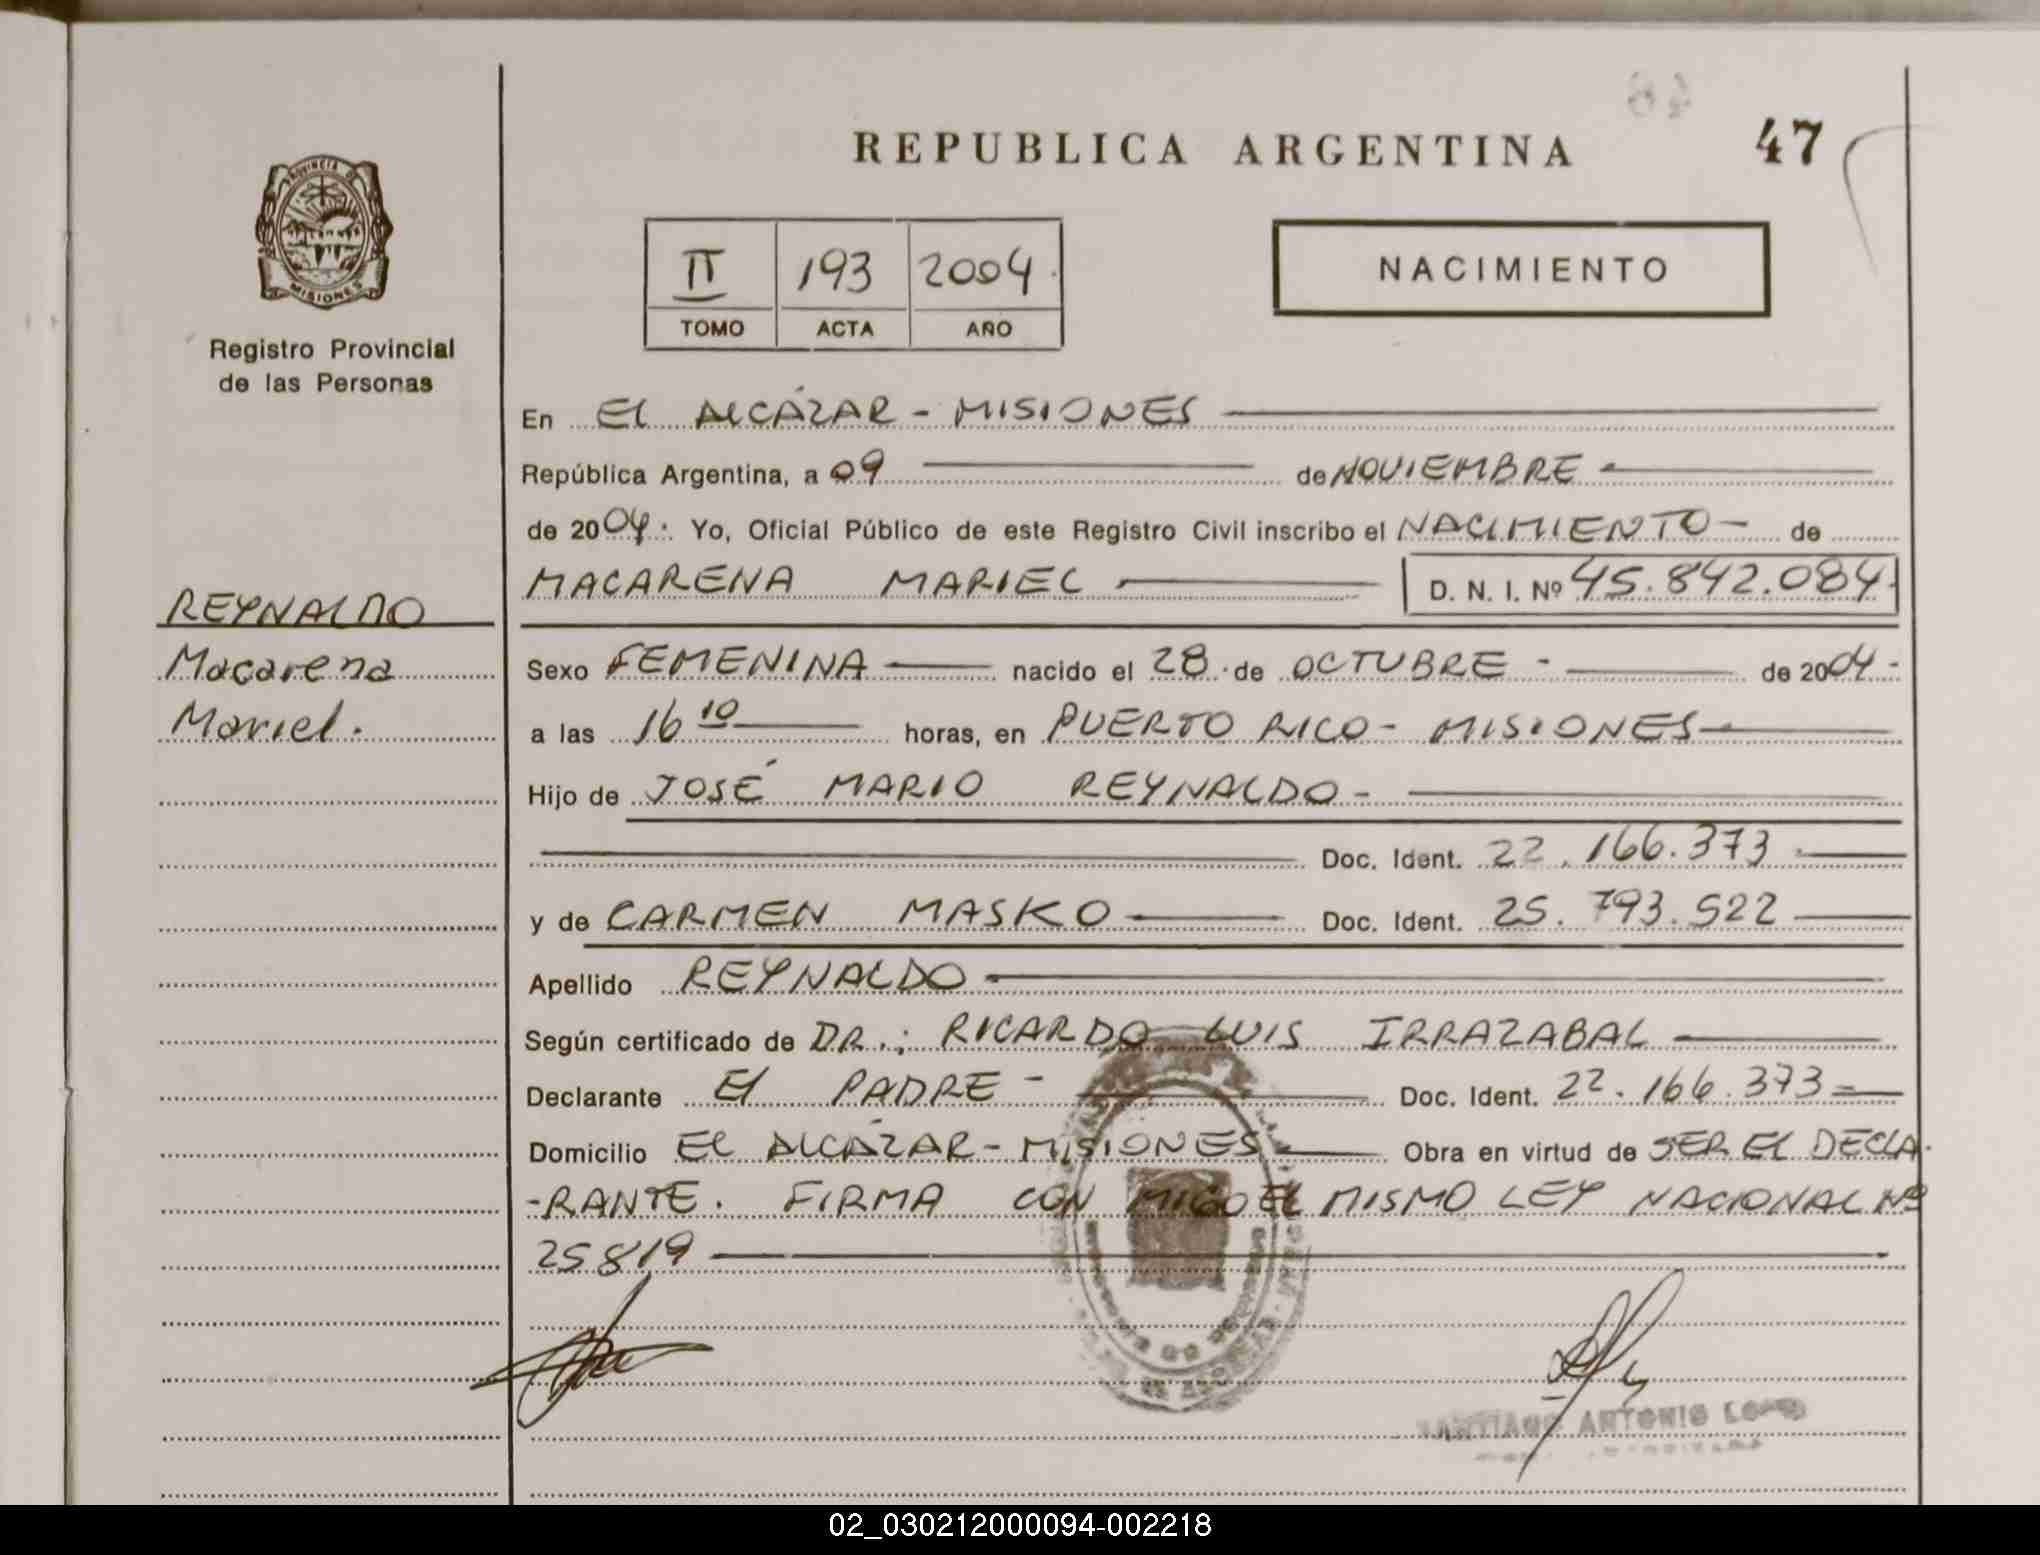 REPUBLICA ARGENTINA
47
PROVINCIA DE
MISIONES
Registro Provincial
de las Personas
II 193 2004.
TOMO ACTA AÑO
NACIMIENTO
En El ALCÁZAR - MISIONES
República Argentina, a 09 de NOVIEMBRE
de 2004. Yo, Oficial Público de este Registro Civil inscribo el NACIMIENTO - de
MACARENA MARIEL D. N. I. Nº 45.842.084.
REYNALDO
Macarena
Mariel.
Sexo FEMENINA nacido el 28 de OCTUBRE - de 2004-
a las 16 10 horas, en PUERTO RICO - MISIONES
Hijo de JOSÉ MARIO REYNALDO -
Doc. Ident. 22.166.373.
y de CARMEN MASKO Doc. Ident. 25.793.522
Apellido REYNALDO
Según certificado de DR.: RICARDO LUIS IRRAZABAL
Declarante El PADRE - Doc. Ident. 22.166.373=
Domicilio EL ALCÁZAR - MISIONES Obra en virtud de SER EL DECLA-
-RANTE. FIRMA CON MIGO EL MISMO LEY NACIONAL Nº
25819
SANTIAGO ANTONIO
02_030212000094-002218